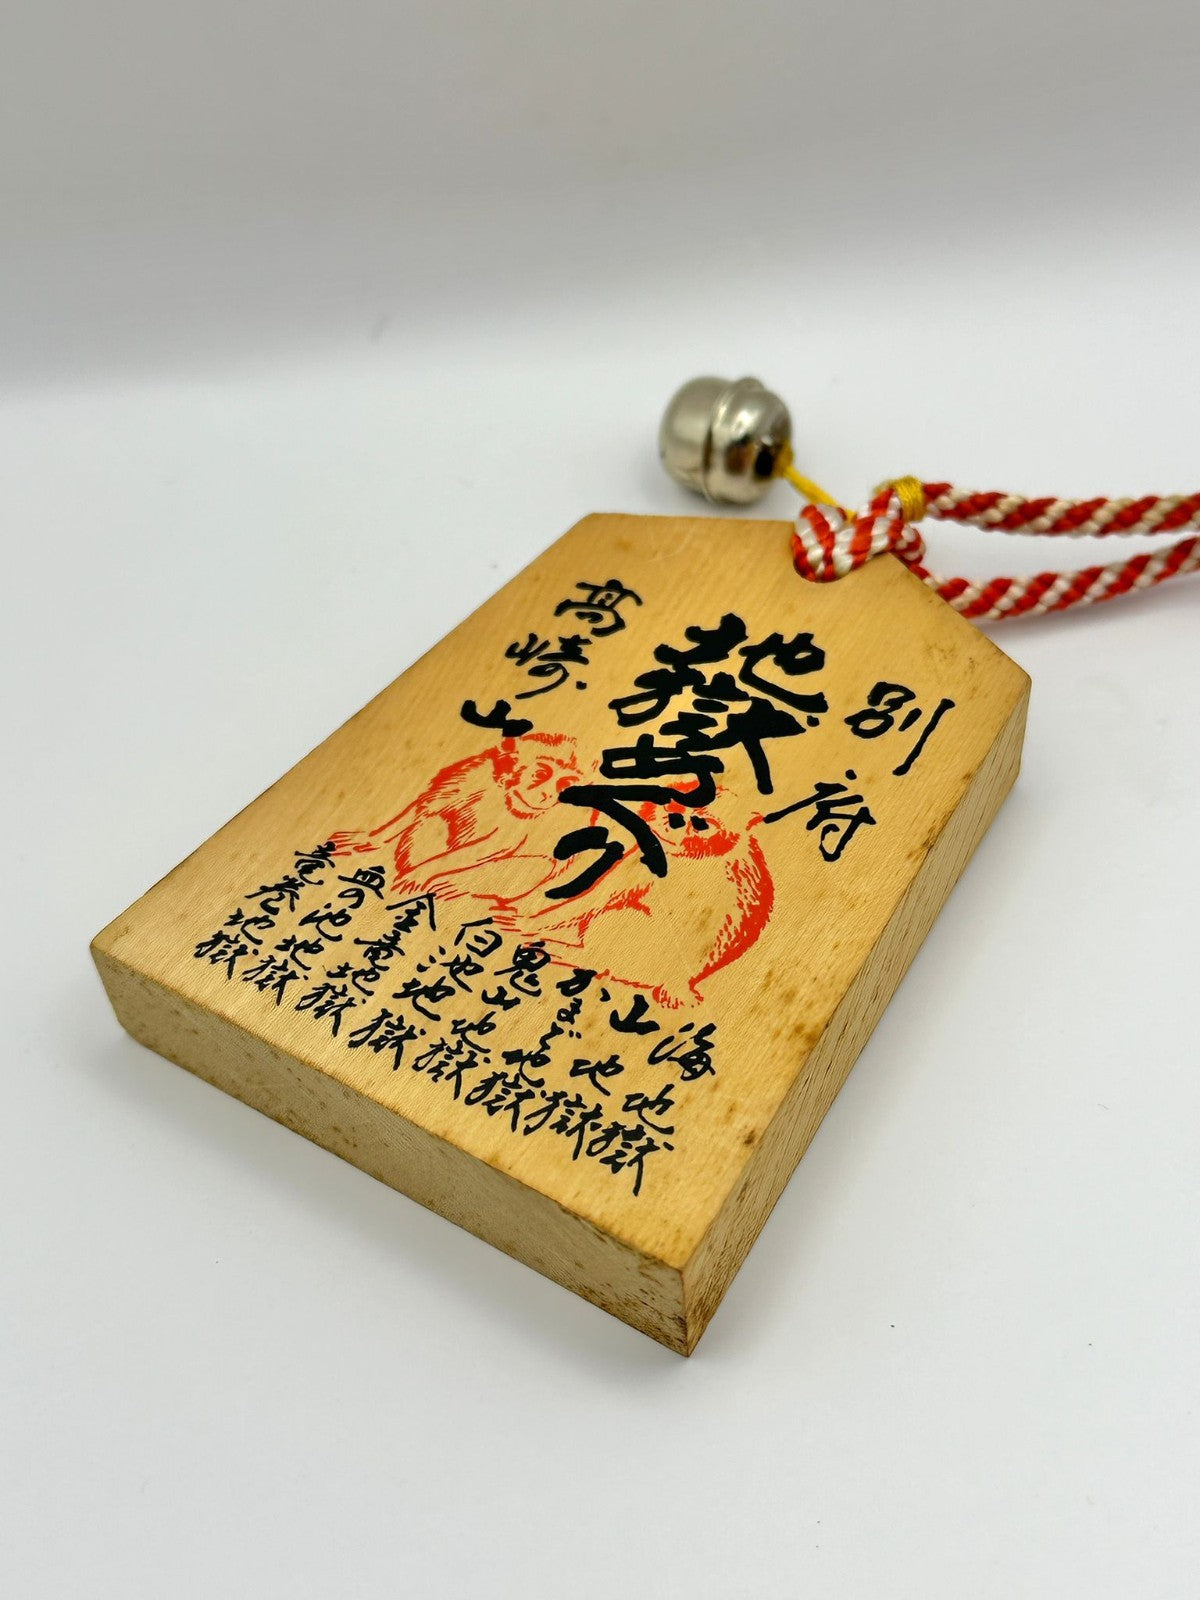 別府
地獄めぐり
高崎山
海地獄
山地獄
かまど地獄
鬼山地獄
白池地獄
金竜地獄
血の池地獄
竜巻地獄